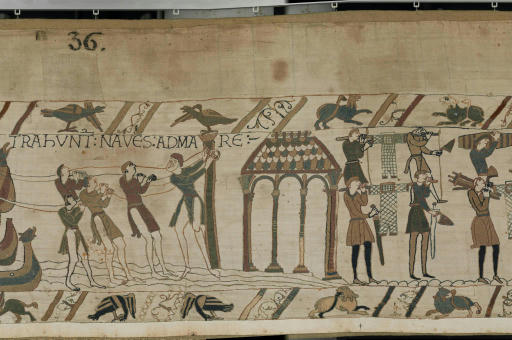 36.
TRAHVNT: NAVES: ADMARE:-